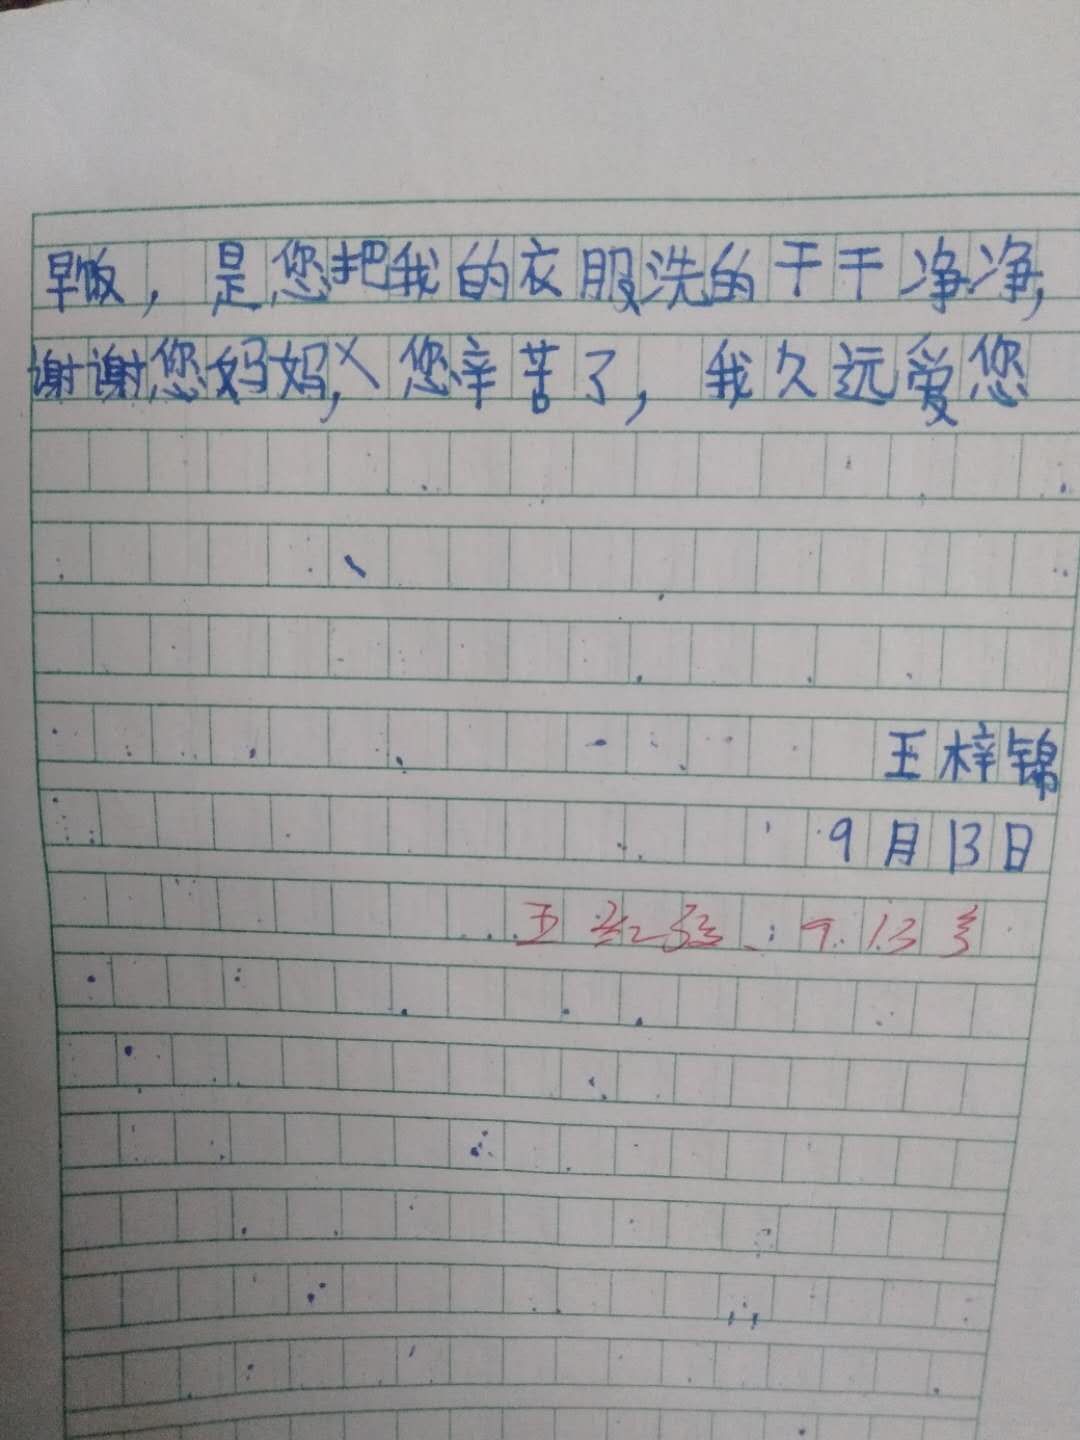 早饭，是您把我的衣服洗的干干净净，
谢谢您妈妈，您辛苦了，我久远爱您
王梓锦
9月13日
9.13